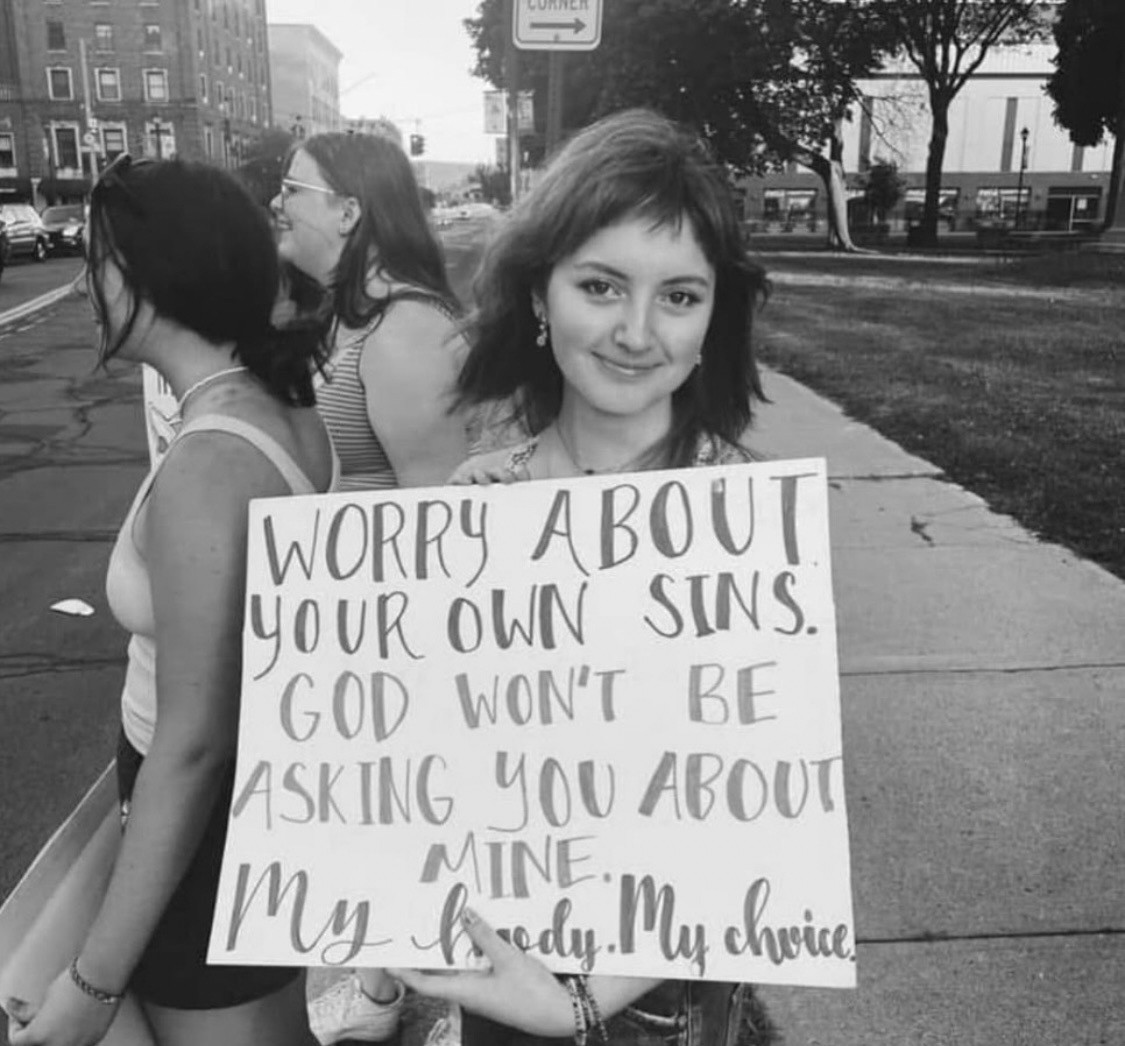 CORNER
WORRY ABOUT
YOUR OWN SINS.
GOD WON'T BE
ASKING YOU ABOUT
MINE.
My body. My choice.